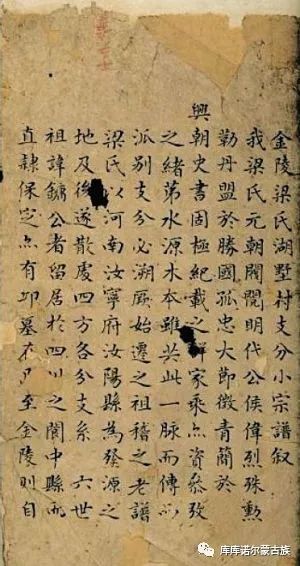 金陵梁氏湖墅村支分小宗譜叙
我梁氏元朝閥閱明代公侯偉烈殊勳
勒丹盟於勝國孤忠大節徵青簡於
興朝史書固極紀載之詳家乘亦資叅攷
之緒第水源木本雖共此一脉而傳以
派別支分必溯厥始遷之祖稽之老譜
梁氏以河南汝寧府汝陽縣為發源之
地及後遂散處四方各分支系六世
祖諱鏞公者留居於四川之閬中縣而
直隸保定亦有邱墓在焉至金陵則自
库库诺尔蒙古族